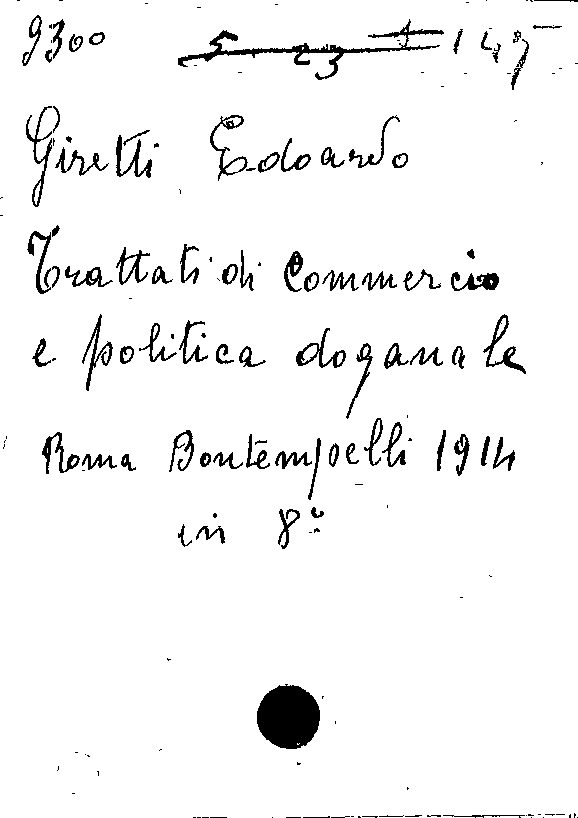 9300 5 23 1 145
Giretti Edoardo
Trattati di Commercio
e politica doganale
Roma Bontempelli 1914
in 8°